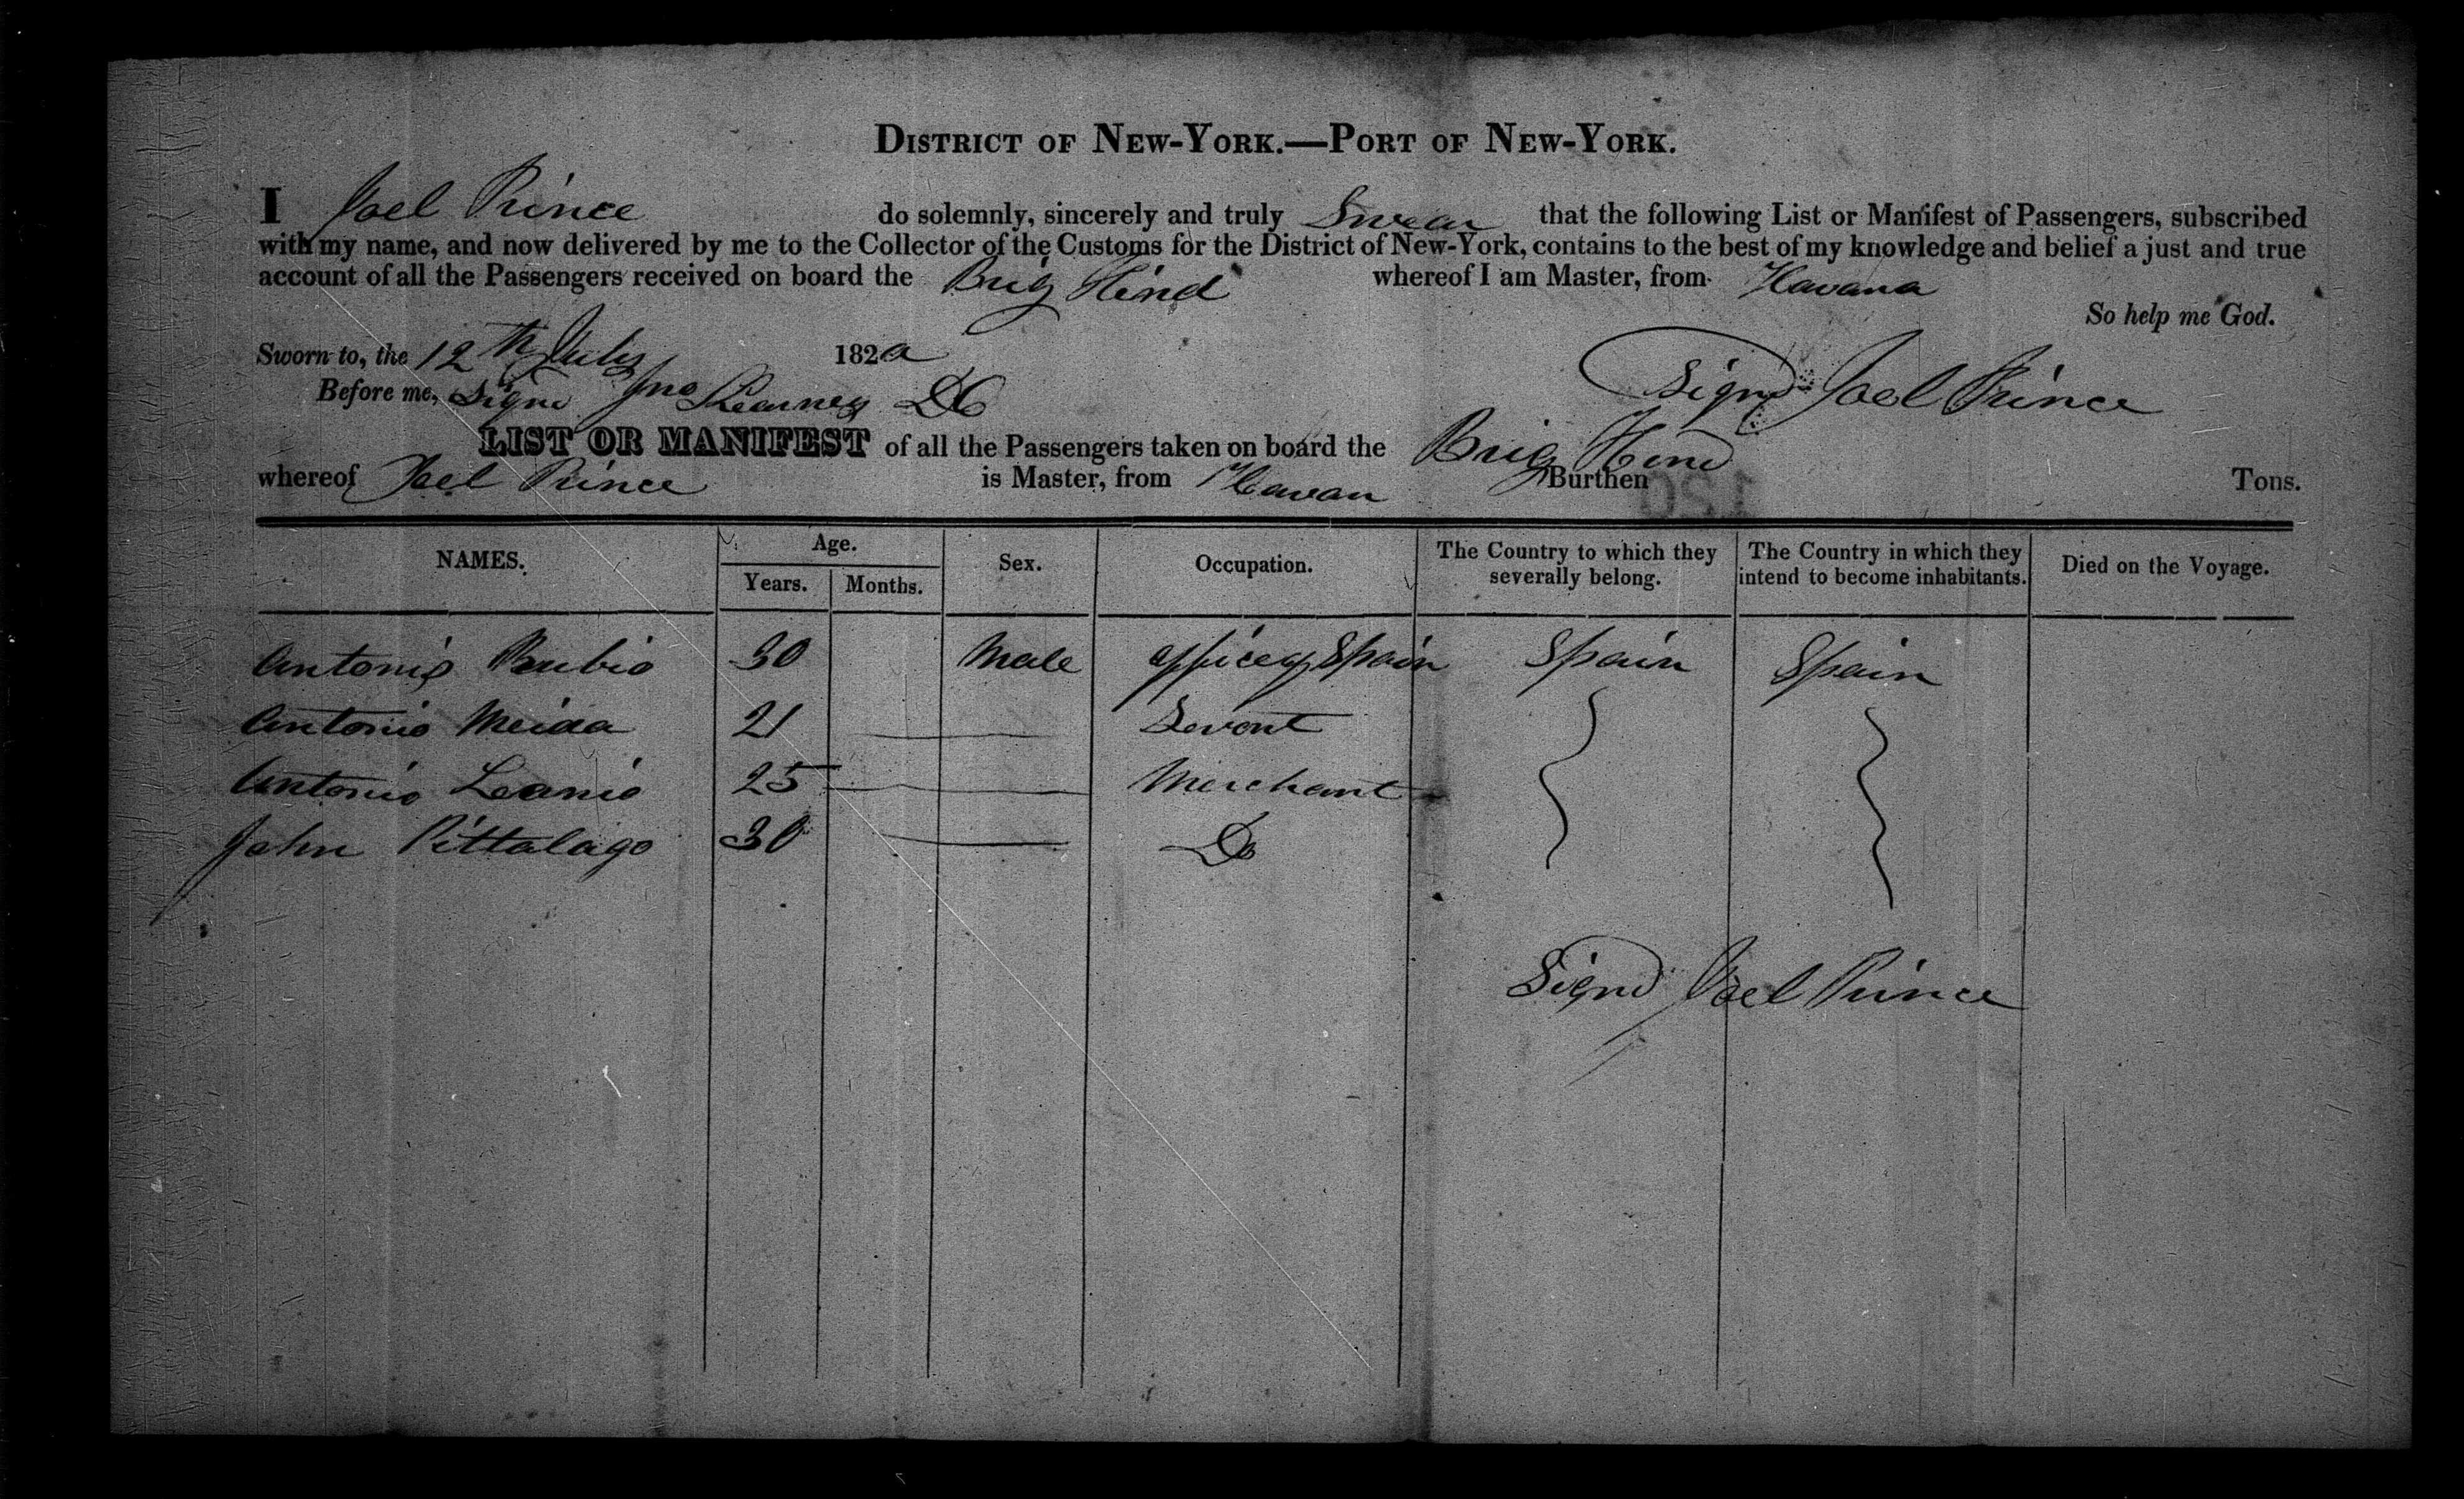 DISTRICT OF NEW-YORK.—PORT OF NEW-YORK.
I Joel Prince do solemnly, sincerely and truly Swear that the following List or Manifest of Passengers, subscribed
with my name, and now delivered by me to the Collector of the Customs for the District of New-York, contains to the best of my knowledge and belief a just and true
account of all the Passengers received on board the Brig Hind whereof I am Master, from Havana
So help me God.
Sworn to, the 12th July 182
Before me, Signd Jno Kearney DC Signd Joel Prince
LIST OR MANIFEST of all the Passengers taken on board the Brig Hind
whereof Joel Prince is Master, from Havan Burthen Tons.
NAMES. Age. Years. Months. Sex. Occupation. The Country to which they severally belong. The Country in which they intend to become inhabitants. Died on the Voyage.
Antonio Rubio 30 Male officer Spain Spain Spain
Antonio Meida 21 Servont
Antonio Leanio 25 Merchant
John Pittalago 30 Do
Signd Joel Prince